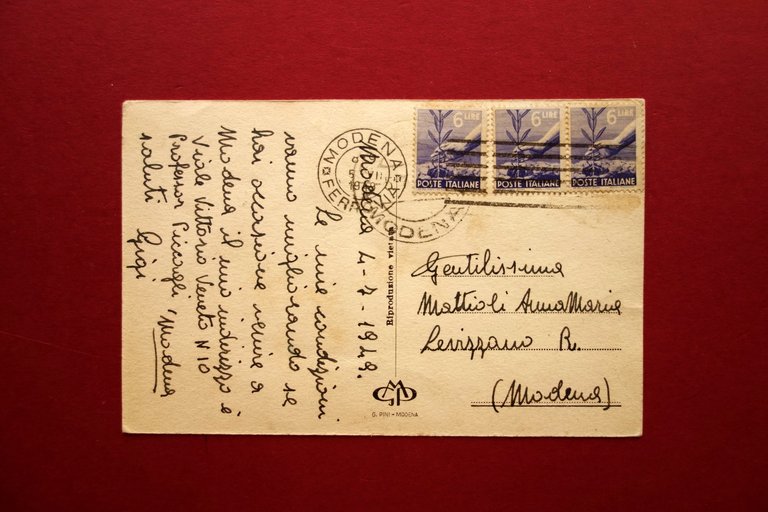 Modena 4-7-1948.
le mie condizioni
vanno migliorando se
hai occasione venire a
Modena il mio indirizzo è
Viale Vittorio Veneto N 10
Professor Piccagli "Modena
saluti Gigi
MODENA
FERROVIA
MODENA
6 LIRE
POSTE ITALIANE
6 LIRE
POSTE ITALIANE
6 LIRE
POSTE ITALIANE
Riproduzione vietata
Gentilissima
Mattioli AnnaMaria
Levizzano R.
(Modena)
G. PINI - MODENA